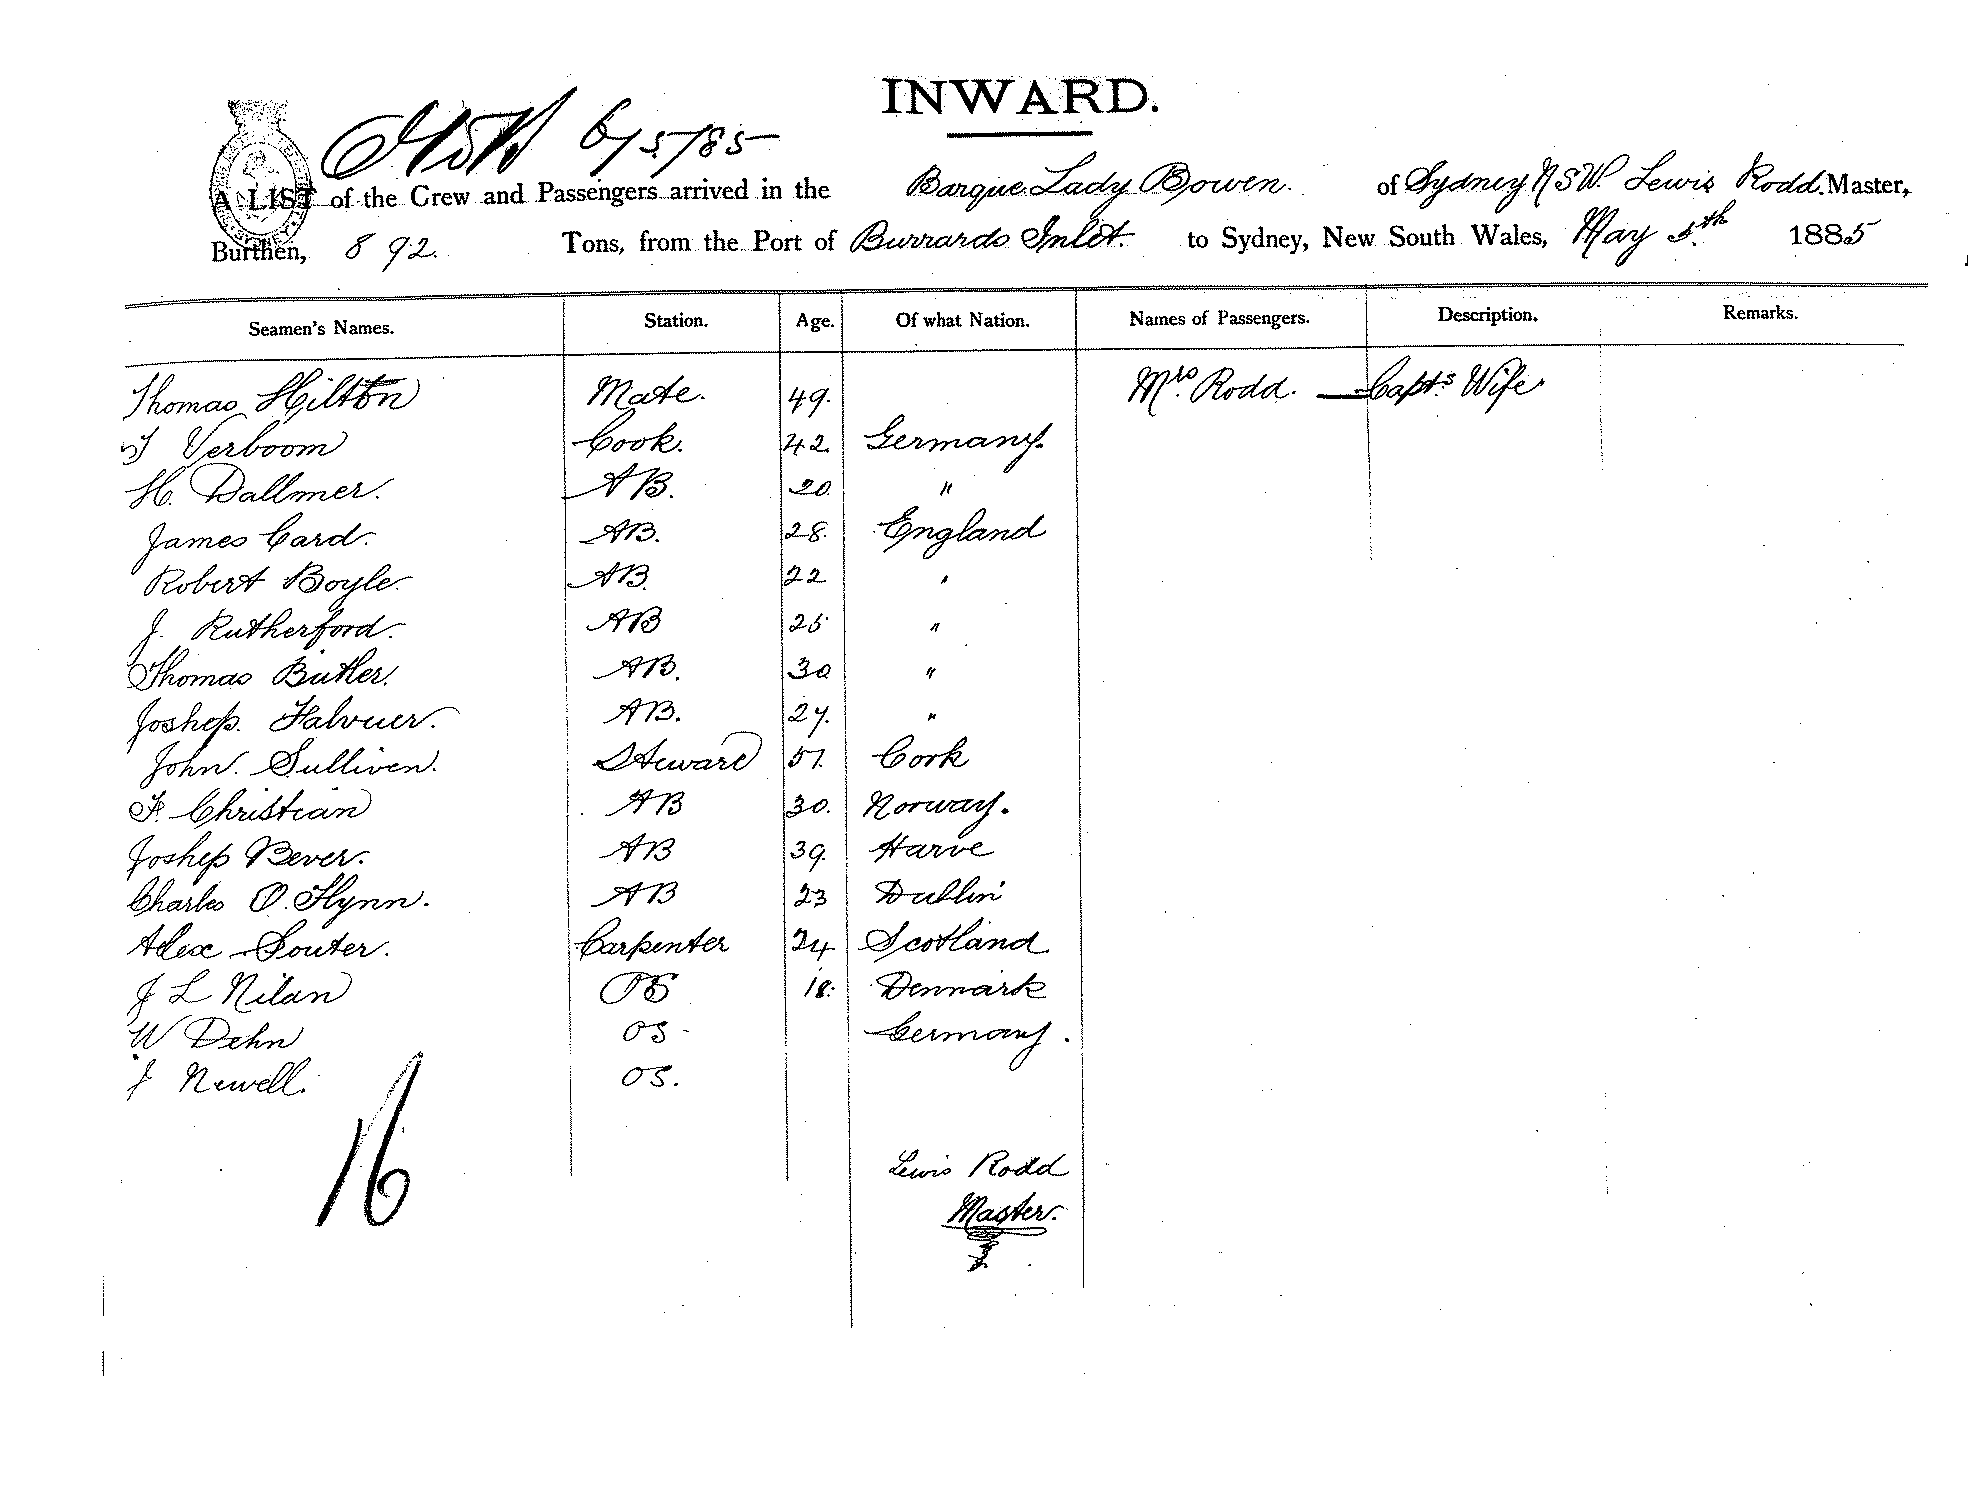 INWARD.
6/5/85
A LIST of the Crew and Passengers arrived in the Barque Lady Bowen. of Sydney NSW. Lewis Rodd. Master,
Burthen, 892. Tons, from the Port of Burrards Inlet. to Sydney, New South Wales, May 5th 1885
Seamen's Names. Station. Age. Of what Nation. Names of Passengers. Description. Remarks.
Thomas Hilton Mate. 49. Mrs. Rodd. — Capt's Wife
Verboom Cook. 42. Germany.
H. Dallmer. AB. 20. "
James Card. AB. 28. England
Robert Boyle. AB. 22 "
J. Rutherford. AB 25 "
Thomas Butler. AB. 30 "
Joshep. Falvuer. AB. 27. "
John. Sulliven. Steward 51. Cork
F. Christian AB 30. Norway.
Joshep Bever. AB 39. Harve
Charles O. Flynn. AB 23 Dublin
Alex Souter. Carpenter 24 Scotland
J L Nilan OS 18. Denmark
W Dehn OS Germany.
J Newell. OS.
16
Lewis Rodd
Master.